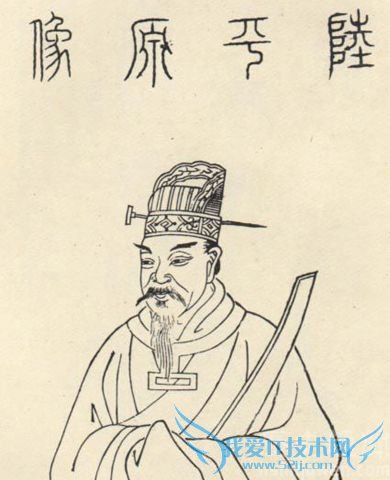 陸平原像
我爱IT技术网
www.52ij.com